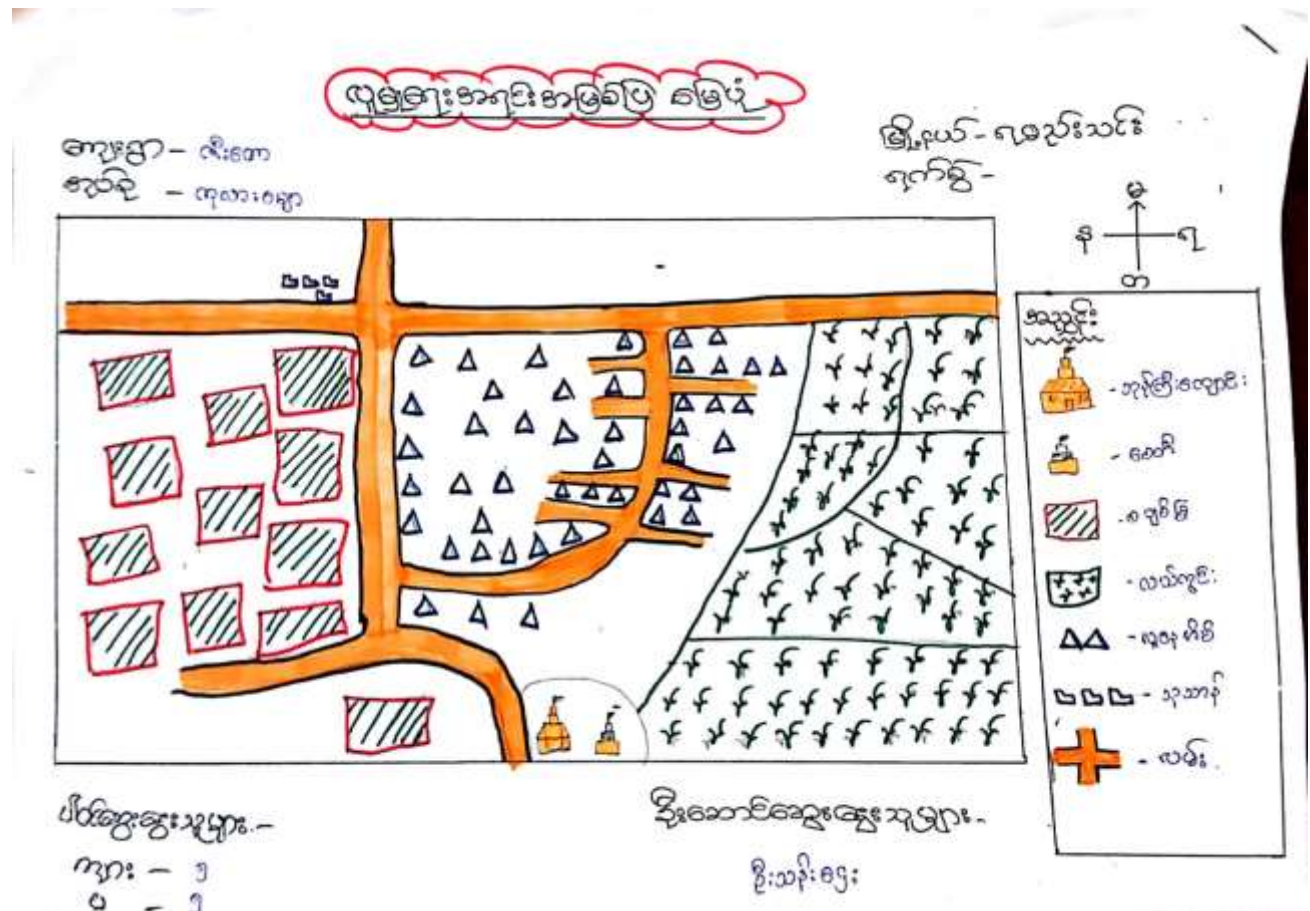 လူမှုရေးအရင်းအမြစ်ပြ မြေပုံ
ကျေးရွာ - ဇီးတော
အုပ်စု - ကုလားမျော
မြို့နယ် - ရမည်းသင်း
ရက်စွဲ -
မ
န
ရ
တ
အညွှန်း
- ဘုန်ကြီးကျောင်း
- စေတီ
- လယ်ကွင်း
- သုသာန်
- လမ်း
ပါဝင်ဆွေးနွေးသူများ -
ကျား - ၅
မ - ၅
ဦးဆောင်ဆွေးနွေးသူများ -